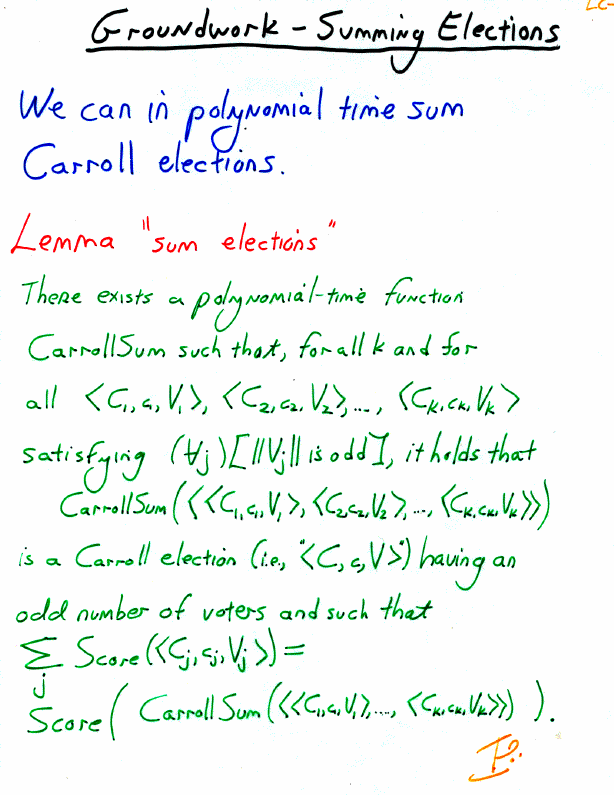 LC-
Groundwork - Summing Elections
We can in polynomial time sum
Carroll elections.
Lemma "sum elections"
There exists a polynomial-time function
CarrollSum such that, for all k and for
all <C₁,c₁,V₁>, <C₂,c₂,V₂>,..., <Cₖ,cₖ,Vₖ>
satisfying (∀j)[||Vⱼ|| is odd], it holds that
CarrollSum(<<C₁,c₁,V₁>,<C₂,c₂,V₂>,..., <Cₖ,cₖ,Vₖ>>)
is a Carroll election (i.e., "<C,c,V>") having an
odd number of voters and such that
∑ Score(<Cⱼ,cⱼ,Vⱼ>) =
j
Score( CarrollSum(<<C₁,c₁,V₁>,..., <Cₖ,cₖ,Vₖ>>) ).